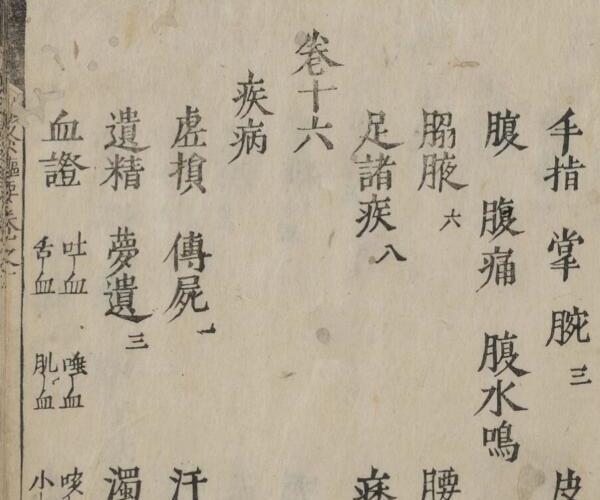 手指 掌 腕 三 皮
腹 腹痛 腹水鳴
腋 六 腰
足諸疾 八
卷十六
疾病
虛損 傳屍 一 汗
遺精 夢遺 三 濁
血證 吐血 唾血
舌血 肌血 小